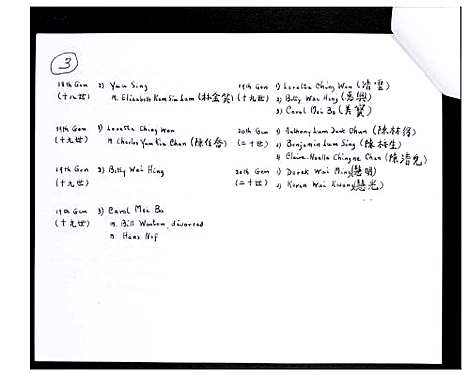 3
18th Gen 2) Yau Sing 19th Gen 1) Loretta Ching Wan (清雲)
(十八世) M. Elizabeth Kam Sim Lum (林金笑) (十九世) 2) Billy Wai Hing (惠興)
3) Carol Mei Bo (美寶)
19th Gen 1) Loretta Ching Wan 20th Gen 1) Anthony Lum Duck Chun
(十九世) M. Charles Yum Kin Chan (二十世) 2) Benjamin Lum Sing
3) Claire Noelle Chingne Chan
19th Gen 2) Billy Wai Hing 20th Gen 1) Derek Wai Ming (慧明)
(十九世) (二十世) 2) Karen Wai Kwong (慧光)
19th Gen 3) Carol Mei Bo
(十九世) M. Bill Wootten, divorced
M Hans Nef